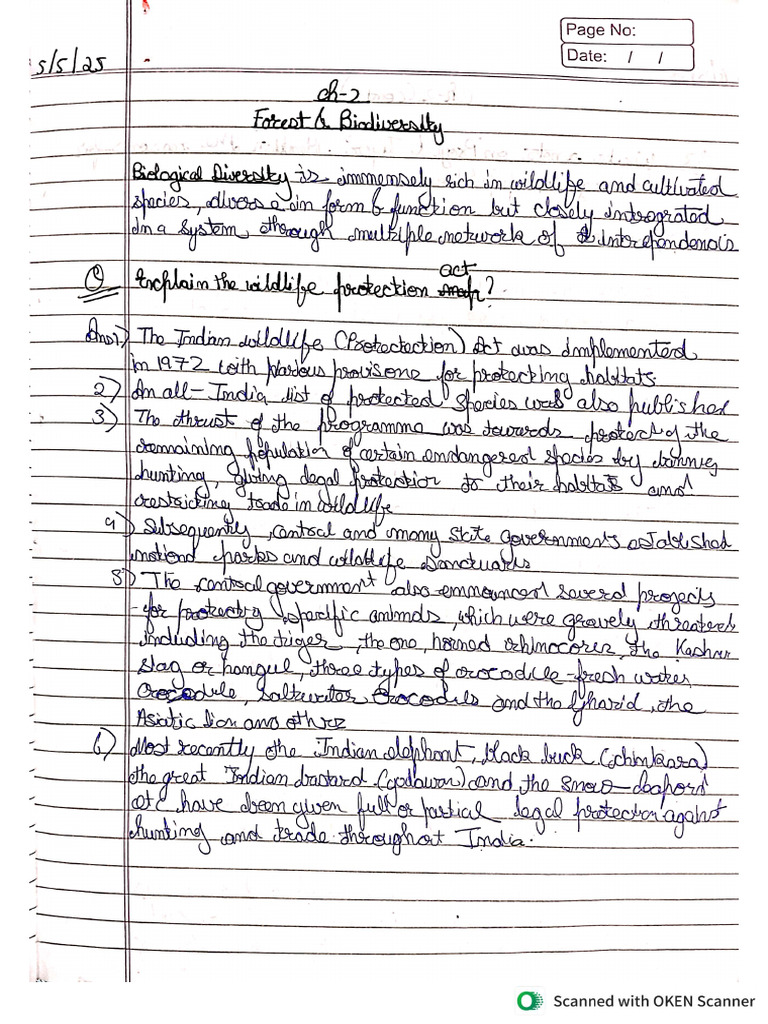 Page No:
Date: / /
5/5/25
ch-2
Forest & Biodiversity
Biological Diversity is immensely rich in wildlife and cultivated
species, diverse in form & function but closely integrated
in a system through multiple network of interdependencis
Q Explain the wildlife protection act?
Ans 1) The Indian wildlife (Protectection) Act was implemented
in 1972 with various provisions for protecting habitats
2) An all-India list of protected species was also published
3) The thrust of the programme was towards protecting the
remaining population of certain endangered species by banning
hunting, giving legal protection to their habitats and
restricking trade in wildlife
4) Subsequently, central and many state governments established
national parks and wildlife sanctuaris
5) The central government also announced several projects
for protecting specific animals, which were gravely threatend
including the tiger, the one, horned rhinocores, the Kashmir
stag or hangul, three types of crocodile-fresh water
Crocodile, Saltwater Crocodils and the Gharid, the
Asiatic lion and othrz
6) Most recently the Indian elephant, black buck (chinkara)
the great Indian bastard (godawan) and the snow-leapord
etc have been given full or partial legal protection against
hunting and trade throughout India.
Scanned with OKEN Scanner